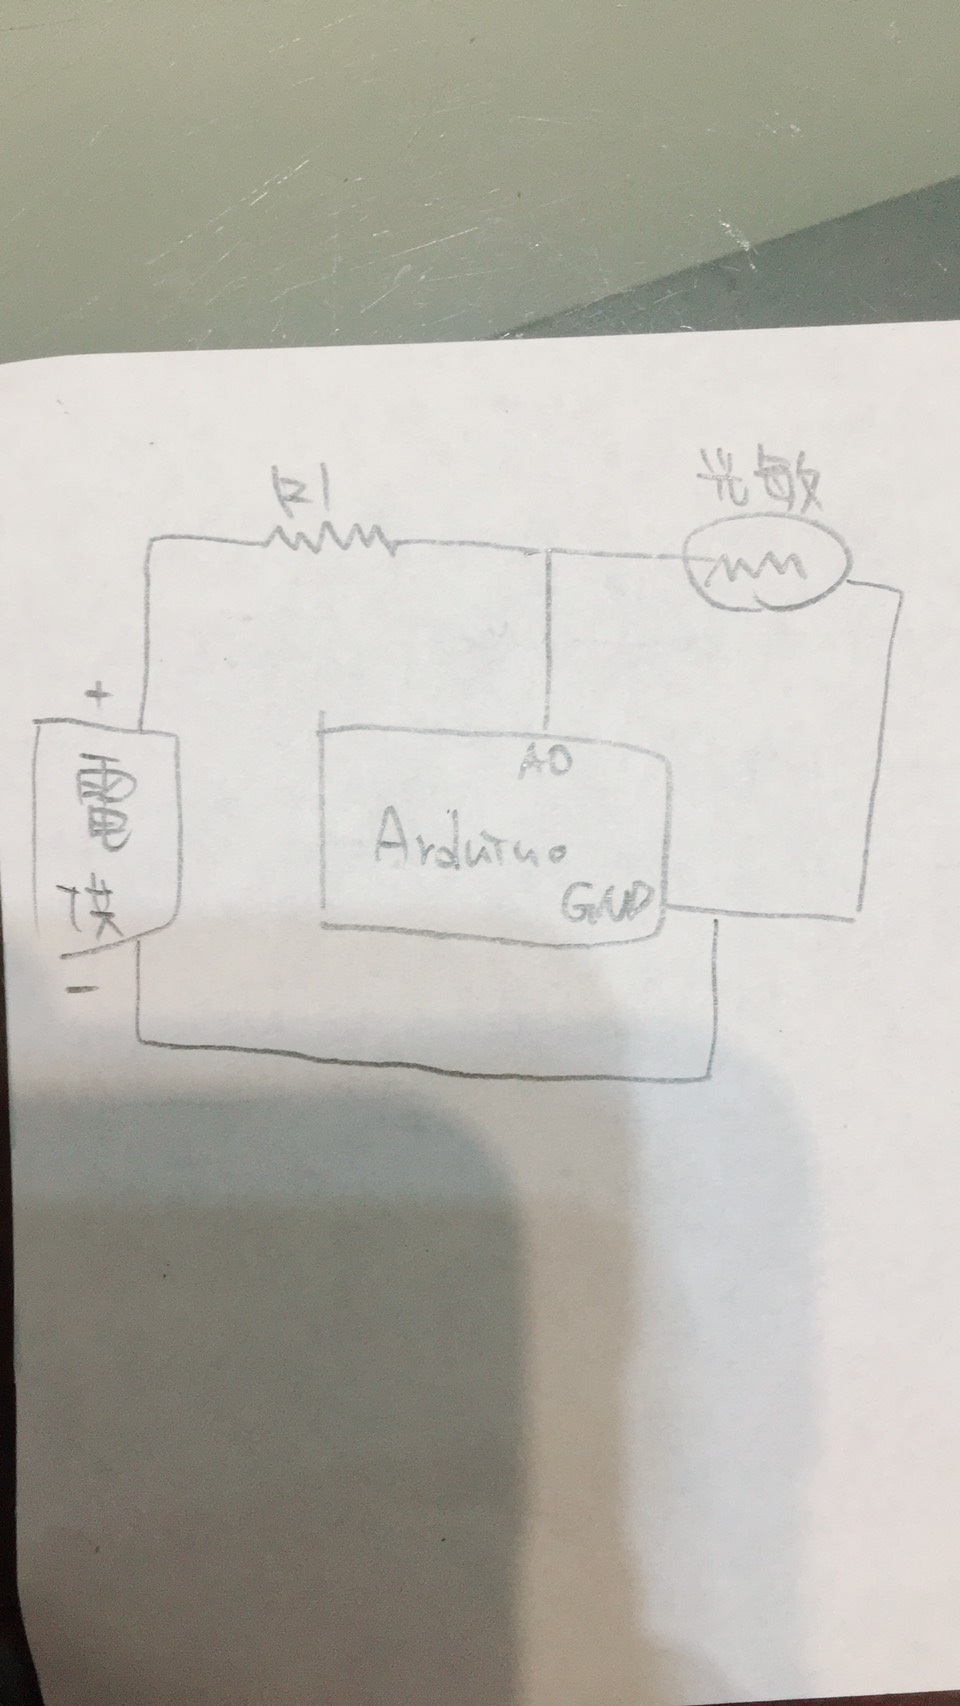 R1
光敏
+
電
供
-
A0
Arduino
GND